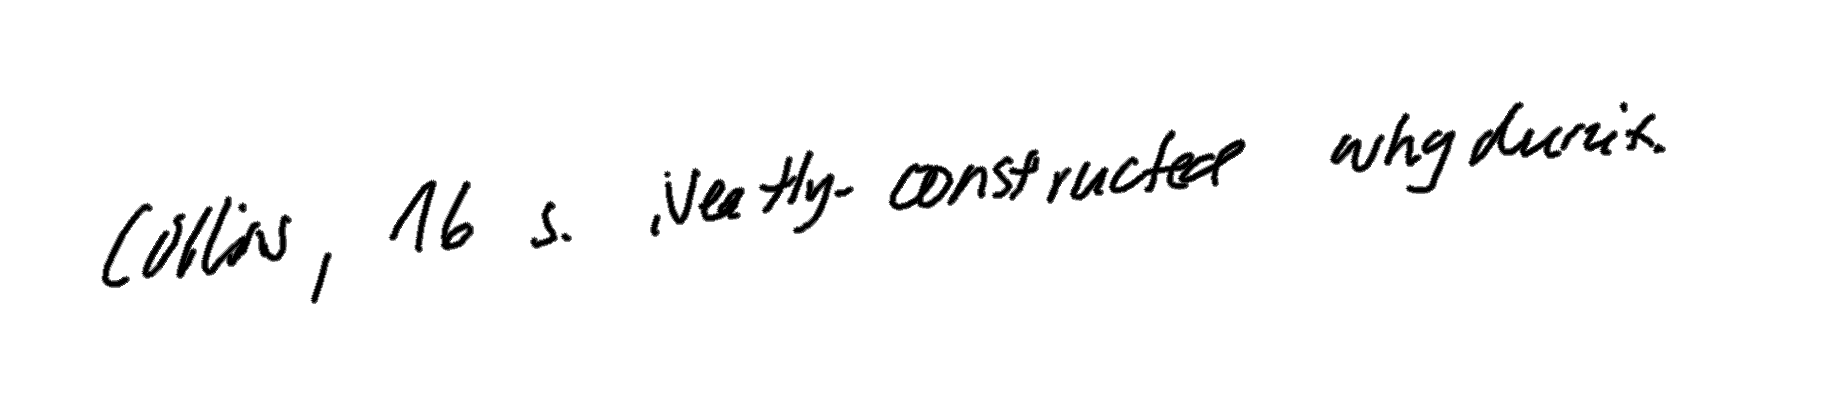 Collins, 16 s. Neatly-constructed whydunit.